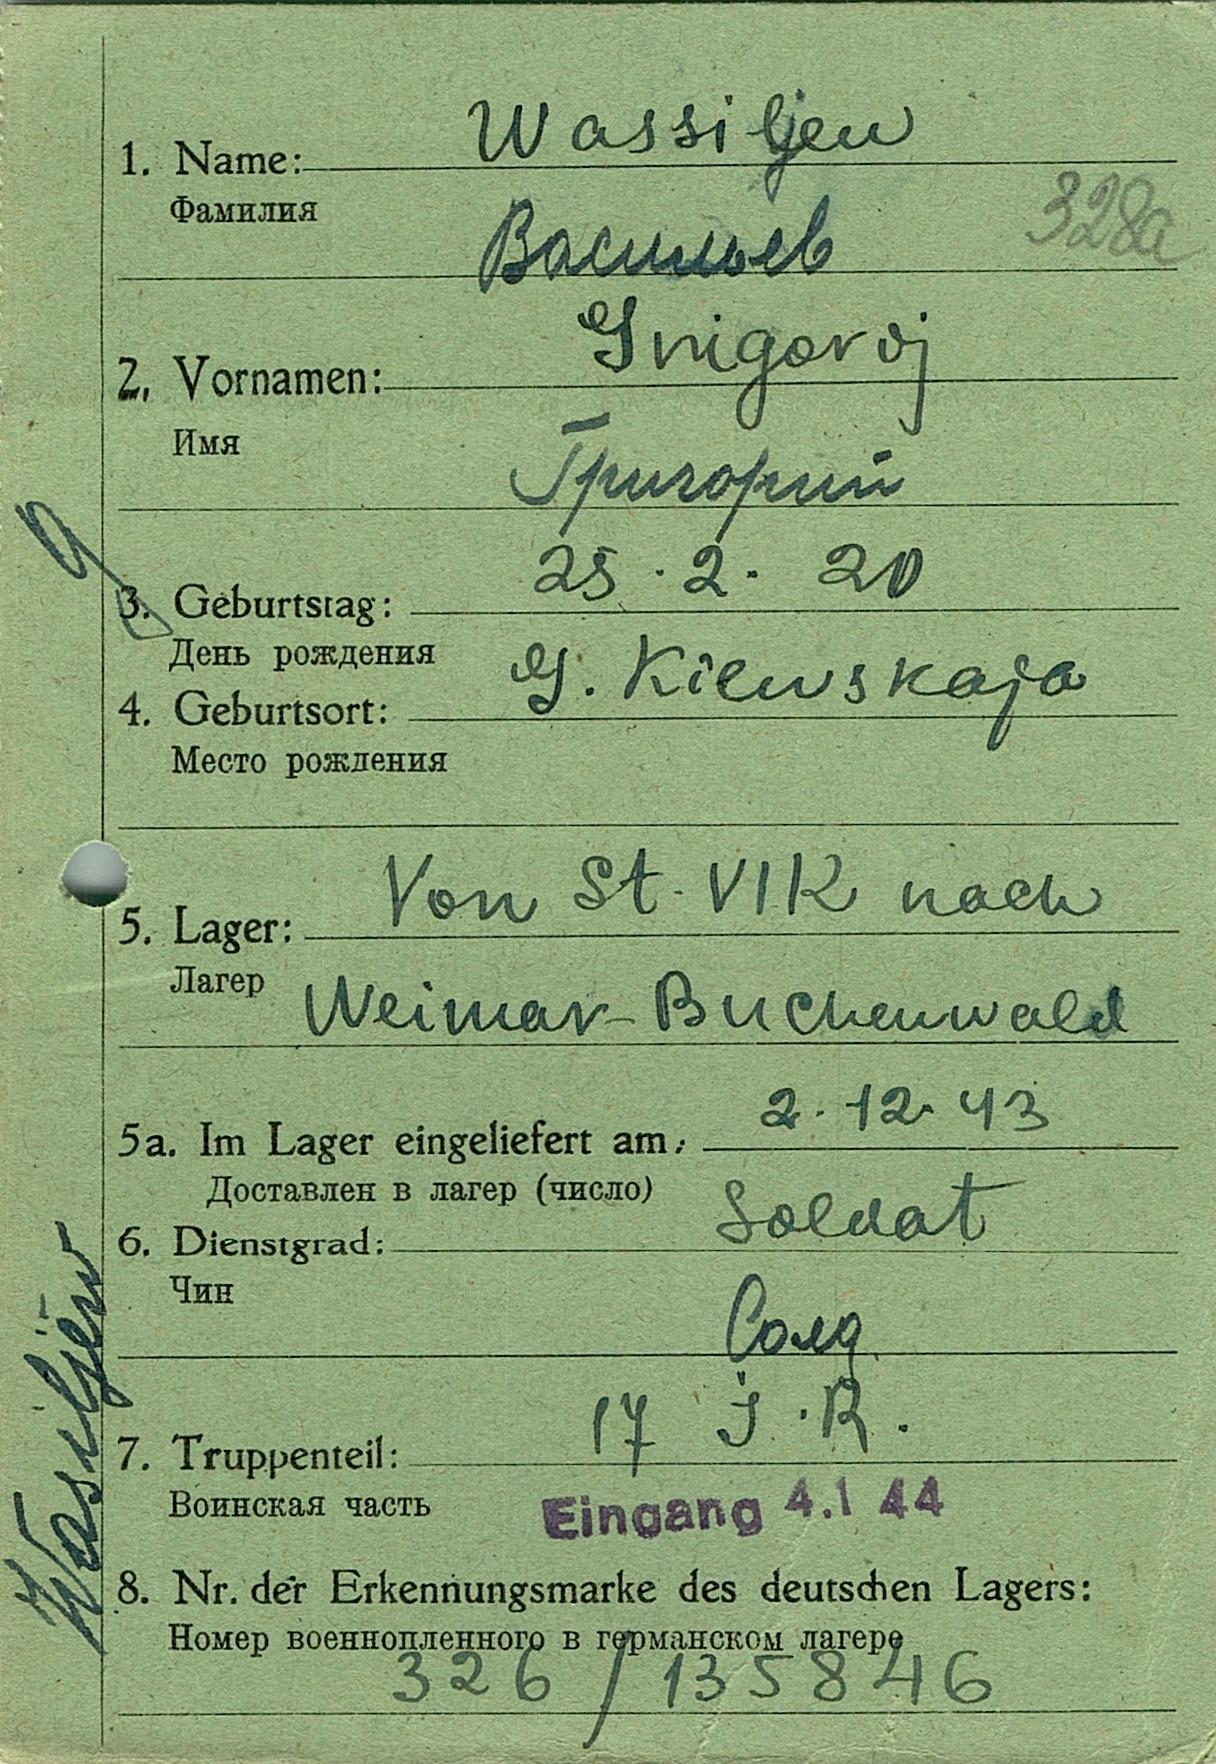 Wassiljew
1. Name:
Фамилия
328a
Васильев
Grigorij
2. Vornamen:
Имя
Григорий
g
25.2.20
3. Geburtstag:
День рождения
G. Kiewskaja
4. Geburtsort:
Место рождения
Von St. VI K nach
5. Lager:
Лагер
Weimar-Buchenwald
2.12.43
5a. Im Lager eingeliefert am:
Доставлен в лагер (число)
Soldat
6. Dienstgrad:
Чин
Солд.
17 J.R.
7. Truppenteil:
Воинская часть
Eingang 4.1 44
8. Nr. der Erkennungsmarke des deutschen Lagers:
Номер военнопленного в германском лагере
326/135846
Wasiljew